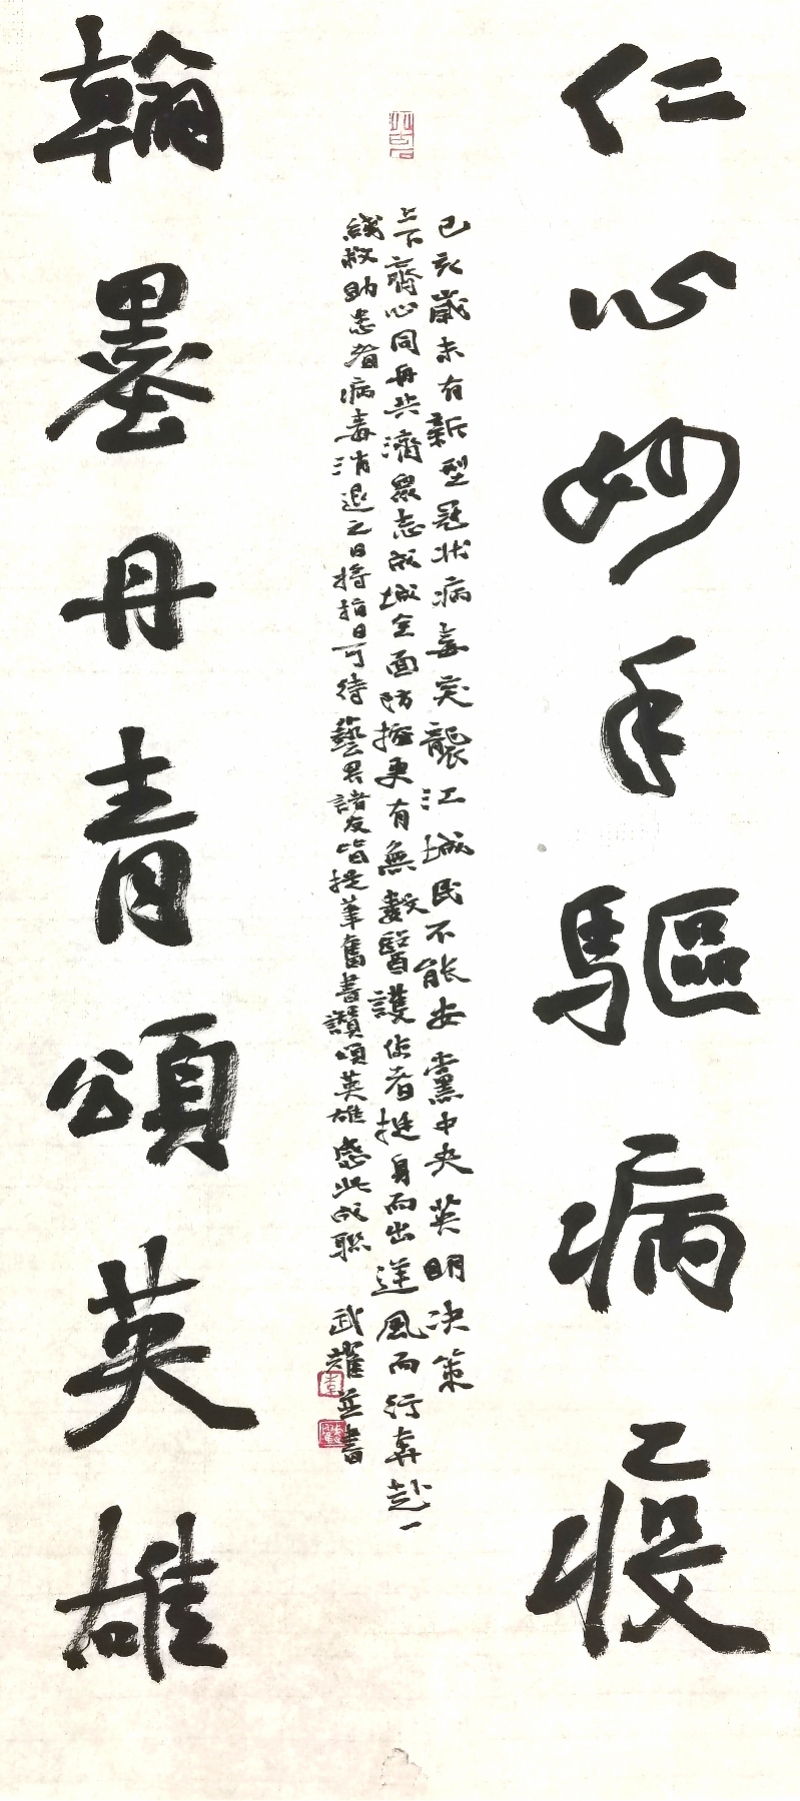 仁心妙手驅病疫
己亥歲末有新型冠狀病毒突襲江城民不能安黨中央英明决策
上下齊心同舟共濟眾志成城全面防控更有無數醫護工作者挺身而出逆風而行奔赴一
綫救助患者病毒消退之日將指日可待藝界諸友皆提筆奮書讚頌英雄感此成聯
武耀並書
翰墨丹青頌英雄